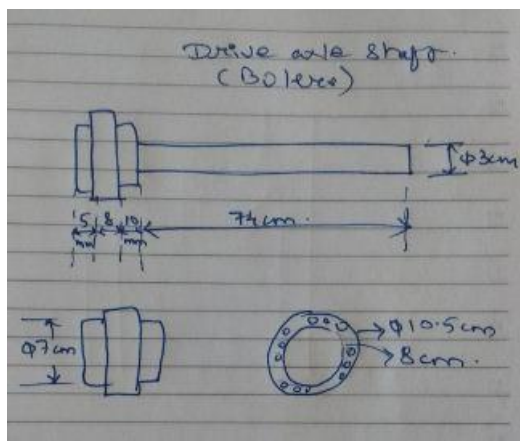 Drive axle shaft.
(Bolero)
φ3cm
5 8 10
mm mm
74cm.
φ7cm
φ10.5cm
8cm.